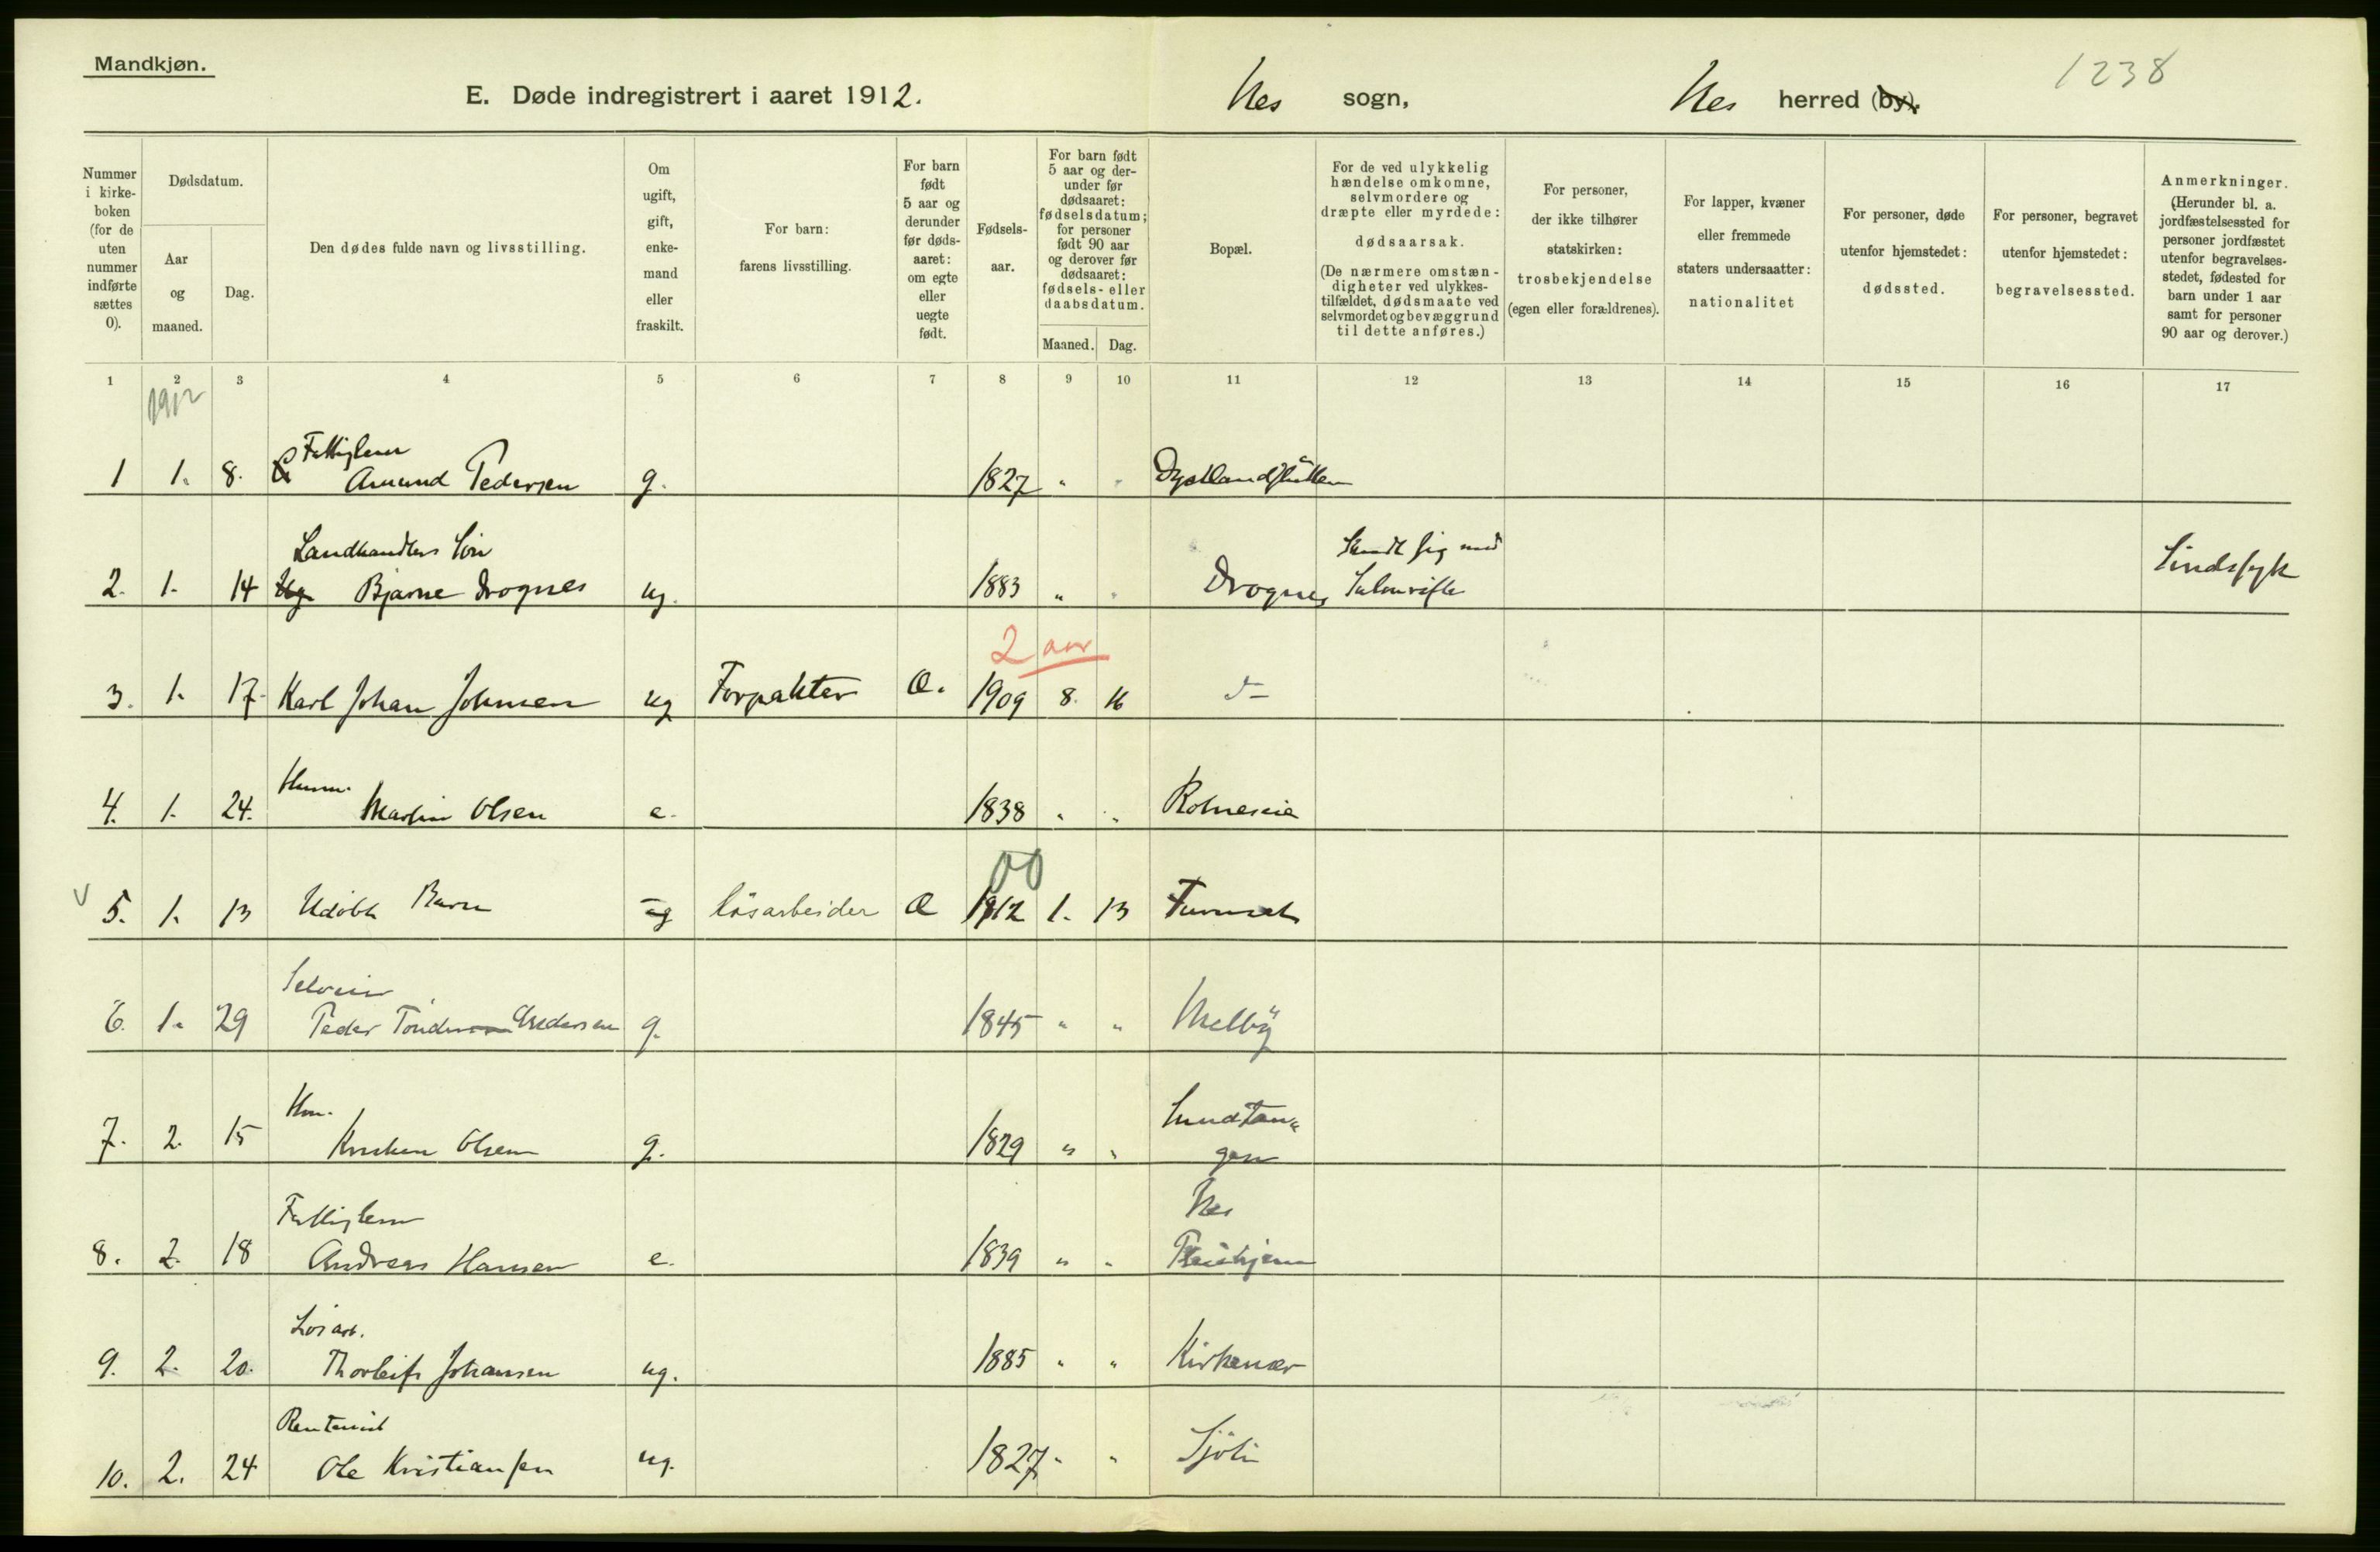 Mandkjøn.
1238
E. Døde indregistrert i aaret 1912. Nes sogn, Nes herred (by).
Nummer i kirkeboken (for de uten nummer indførte sættes 0).
Dødsdatum.
Aar og maaned.
Dag.
Den dødes fulde navn og livsstilling.
Om ugift, gift, enkemand eller fraskilt.
For barn: farens livsstilling.
For barn født 5 aar og derunder før dødsaaret: om egte eller uegte født.
Fødselsaar.
For barn født 5 aar og derunder før dødsaaret: fødselsdatum; for personer født 90 aar og derover før dødsaaret: fødsels- eller daabsdatum.
Maaned. Dag.
Bopæl.
For de ved ulykkelig hændelse omkomne, selvmordere og dræpte eller myrdede: dødsaarsak. (De nærmere omstændigheter ved ulykkestilfældet, dødsmaate ved selvmordet og bevæggrund til dette anføres.)
For personer, der ikke tilhører statskirken: trosbekjendelse (egen eller forældrenes).
For lapper, kvæner eller fremmede staters undersaatter: nationalitet
For personer, døde utenfor hjemstedet: dødssted.
For personer, begravet utenfor hjemstedet: begravelsessted.
Anmerkninger. (Herunder bl. a. jordfæstelsessted for personer jordfæstet utenfor begravelsesstedet, fødested for barn under 1 aar samt for personer 90 aar og derover.)
1 2 3 4 5 6 7 8 9 10 11 12 13 14 15 16 17
1912
Fattiglem
1 1. 8. Amund Pedersen g. 1827 " "
Landhandlers Sön
2. 1. 14 Bjarne Drognes ug. 1883 " " Drognes Skudt sig med Salonrifle Sindssyk
2 aar
3. 1. 17. Karl Johan Johnsen ug Forpakter Æ. 1909 8. 16 d–
Husm.
4. 1. 24. Martin Olsen e. 1838 " "
00
5. 1. 13 Udöbt Barn ug lösarbeider Æ 1912 1. 13
Selveier
6. 1. 29 Peder Tönder Andersen g. 1845 " " Melby
Hm.
7. 2. 15 Olsen g. 1829 " " Sundtangen
Fattiglem
8. 2. 18 Andreas Hansen e. 1839 " " Nes Pleiehjem
Lösarb.
9. 2. 20. Thorleif Johansen ug. 1885 " " Kirkenær
Rentenist
10. 2. 24 Ole Kristiansen ug. 1827 " " Sjöli